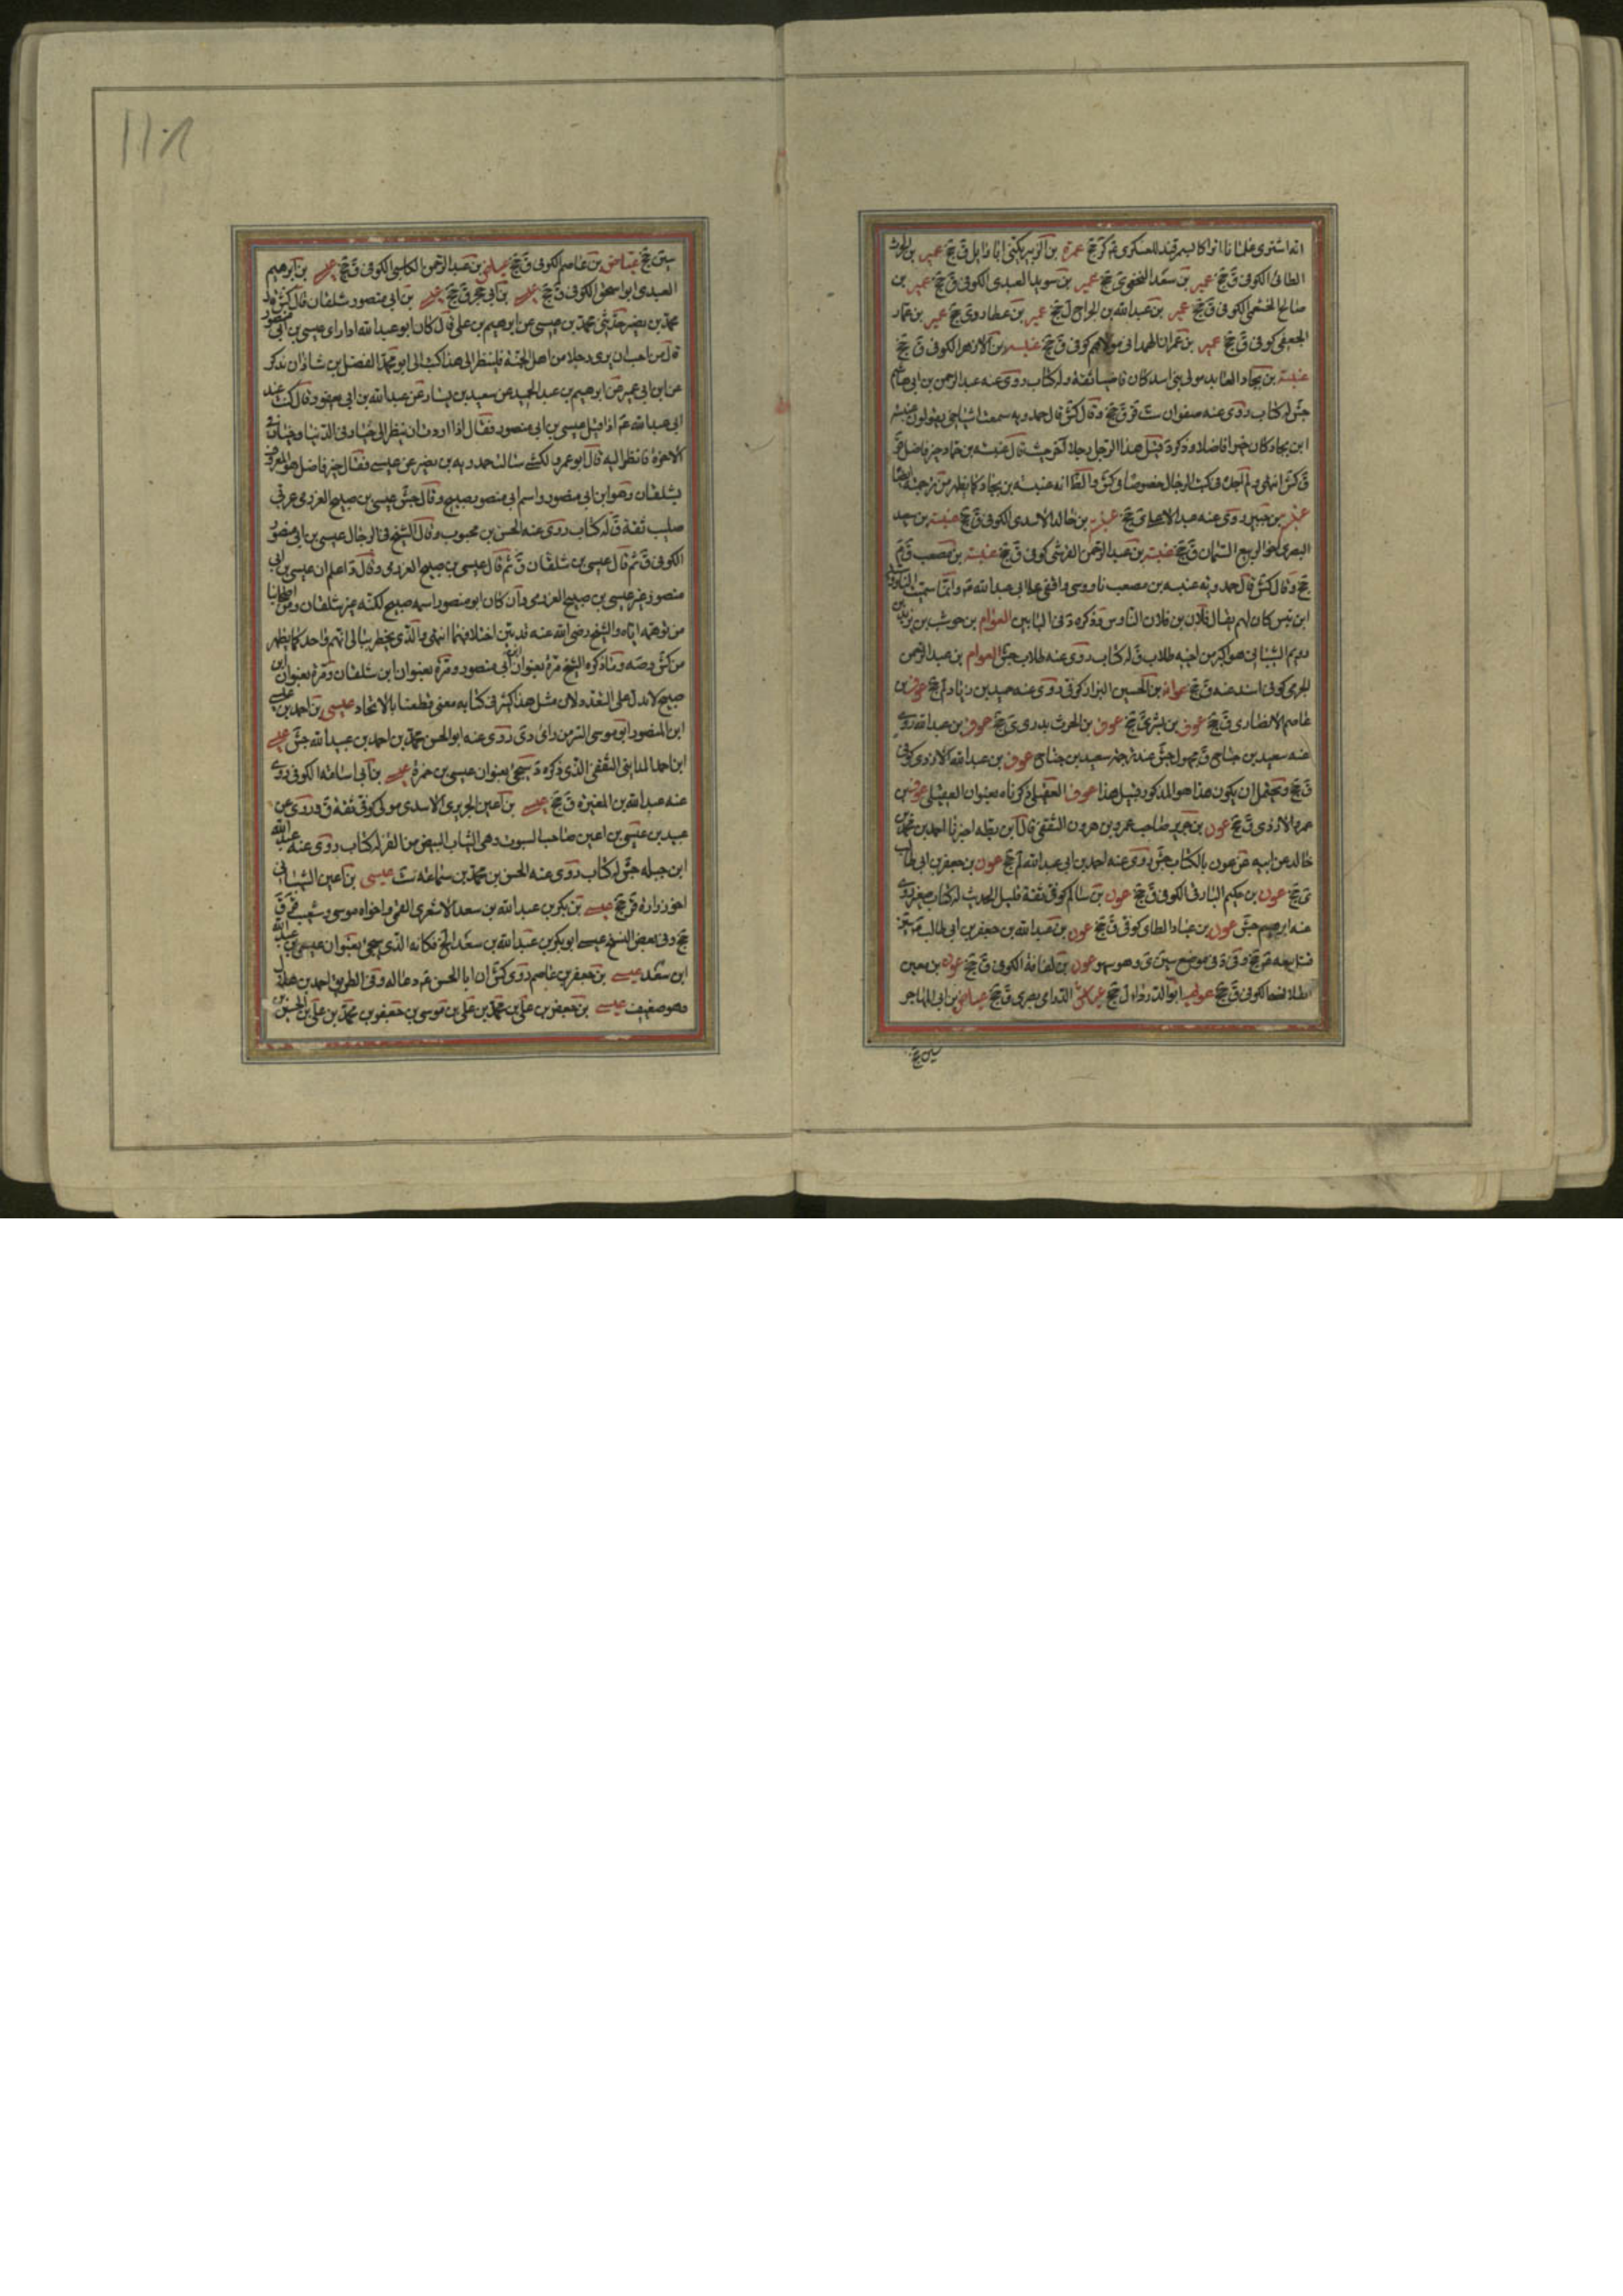 انه اشترى غلمانا اتراكا بسمرقند للعسكرى عم كر جخ عمرة بن الزبير يكنى ابا وايل ق جخ عمير بن الحرث
الطائى الكوفى ق جخ عمير بن سعد النخعى ى جخ عمير بن سويد العبدى الكوفى ق جخ عمير بن
صالح الخثعمى الكوفى ق جخ عمير بن عبدالله بن الجراح ل جخ عمير بن عطارد ى جخ عمير بن عمار
الجعفى كوفى ق جخ عمير بن عمران الهمدانى مولاهم كوفى ق جخ عنبسه بن الازهر الكوفى ق جخ
عنبسة بن بجاد العابد مولى بنى اسد كان قاضيا ثقة وله كتاب روى عنه عبدالرحمن بن ابى هاشم
جش له كتاب روى عنه صفوان ست قر ق جخ و قال كش قال حمدويه سمعت اشياخى يقولون عنبسة
ابن بجاد كان خيرا فاضلا وذكر د قبل هذا الرجل رجلا آخر حيث قال عنبسه بن حماد خير فاضل
ق كش انتهى ولم اجده فى كتب الرجال خصوصا فى كش والظ انه عنبسه بن بجاد كما يظهر من ترجمته
عنه عبدالاعلى ى جخ عنبسة بن خالد الاسدى الكوفى ق جخ عنبسة بن سعيد
البصرى اخو الربيع السمان ق جخ عنبسة بن عبدالرحمن القرشى كوفى ق جخ عنبسة بن مصعب ق م
جخ و قال كش قال حمدويه عنبسه بن مصعب ناووسى واقفى على ابى عبدالله عم وانما سميت
ابن بتس كان لهم يقال فلان بن فلان الناوس وذكره د فى البابين العوام بن حوشب بن يزيد بن
رويم الشيبانى هو اكبر من اخيه طلاب ق له كتاب روى عنه طلاب جش العوام بن عبدالرحمن
الجرمى كوفى اسند عنه ق جخ عوانه بن الحسين البزاز كوفى روى عنه حميد بن زياد لم جخ عوف بن
عاصم الانصارى ق جخ عوف بن بشر ى جخ عوف بن الحرث بدرى ى جخ عوف بن عبدالله روى
عنه سعيد بن جناح ق مجهول جش عند ترجمة سعيد بن جناح عوف بن عبدالله الازدى كوفى
ق جخ ويحتمل ان يكون هذا هو المذكور قبيل هذا عوف العقيلى ذكرناه بعنوان العقيلى عون بن
عمرو الازدى ق جخ عون بن جرير صاحب عمرو بن هرون الثقفى قال ابن بطه اخبرنا احمد بن محمد بن
خالد عن ابيه عن عون بالكتاب جش روى عنه احمد بن ابى عبدالله لم جخ عون بن جعفر بن ابى طالب
ى جخ عون بن حكيم البارقى الكوفى ق جخ عون بن سالم كوفى ثقة قليل الحديث له كتاب صغير روى
عنه ابرهيم جش عون بن عباد الطاى كوفى ق جخ عون بن عبدالله بن جعفر بن ابى طالب
قتل معه عم جخ و فى د فى موضع سين ى وهو سهو عون بن كفانة الكوفى ق جخ عون بن معين
الكوفى ق جخ عويمر ابو الدرداء ل جخ الدراى بصرى ق جخ عياض بن ابى المهاجر
سين جخ
١١٠٨
سين جخ عياض بن عاصم الكوفى ق جخ بن عبدالرحمن الكوفى ق جخ عيسى بن ابرهيم
العبدى ابو اسحق الكوفى ق جخ عيسى بن ابى حجر ق جخ عيسى بن ابى منصور شلقان قال كش
محمد بن نصير حدثنى محمد بن عيسى عن ابرهيم بن على قال كان ابو عبدالله اذا راى عيسى بن ابى منصور
قال من احب ان يرى رجلا من اهل الجنة فلينظر الى هذا كتب الى ابو محمد الفضل بن شاذان يذكر
عن ابن ابى عمير عن ابرهيم بن عبدالحميد عن سعيد بن يسار عن عبدالله بن ابى يعفور قال كنت عند
ابى عبدالله عم اذ اقبل عيسى بن ابى منصور فقال اذا اردت ان تنظر الى خيار فى الدنيا وخيار فى
الاخرة فانظر اليه قال ابو عمرو الكشى سالت حمدويه بن نصير عن عيسى فقال خير فاضل هو المعروف
بشلقان وهو ابن ابى منصور واسم ابى منصور صبيح و قال جش عيسى بن صبيح العرزمى عربى
صليب ثقة ق له كتاب روى عنه الحسن بن محبوب وقال الشيخ فى الرجال عيسى بن ابى منصور
الكوفى ق ثم قال عيسى بن شلقان ق ثم قال عيسى بن صبيح العرزمى و قال د اعلم ان عيسى بن ابى
منصور غير عيسى بن صبيح العرزمى وان كان ابو منصور اسمه صبيح لكنه غير شلقان ومن اصحابنا
من توهمه اياه والشيخ رضى الله عنه قد بين اختلافهما انتهى والذى يخطر ببالى انهم واحد كما يظهر
من كش وصه وما ذكره الشيخ مرة بعنوان ابن ابى منصور ومرة بعنوان ابن شلقان ومرة بعنوان ابن
صبيح لا يدل على التعدد لان مثل هذا كثير فى كتابه معنى قطعنا بالاتحاد عيسى بن احمد بن عيسى
ابن المنصور ابو موسى السرمن راى دى روى عنه ابو الحسن محمد بن احمد بن عبيد الله جش عيسى
ابن احمد المداينى الثقفى الذى ذكره د سيجئ بعنوان عيسى بن حمزة عيسى بن ابى اسامة الكوفى روى
عنه عبدالله بن المغيرة ق جخ عيسى بن اعين الجريرى الاسدى مولى كوفى ثقة ق روى عن
عبيد بن عيسى بن اعين صاحب السبوب وهى الثياب البيض من القز له كتاب روى عنه عبدالله
ابن جبله جش له كتاب روى عنه الحسن بن محمد بن سماعه ست عيسى بن اعين الشيبانى
اخو زرارة قر جخ عيسى بن بكر بن عبدالله بن سعد الاشعرى القمى واخواه موسى وشعيب ق
جخ وفى بعض النسخ عيسى ابو بكر بن عبدالله بن سعد الخ فكانه الذى سيجئ بعنوان عيسى بن عبدالله
ابن سعد عيسى بن جعفر بن عاصم روى كش ان ابا الحسن عم دعا له وفى الطريق احمد بن هلال
وهو ضعيف عيسى بن جعفر بن على بن محمد بن على بن موسى بن جعفر بن محمد بن على بن الحسين بن